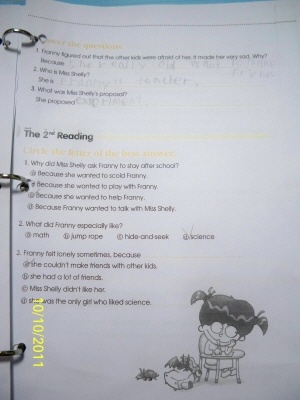 wer the questions.
1. Franny figured out that the other kids were afraid of her. It made her very sad. Why?
Because she really did want
2. Who is Miss Shelly?
She is Franny's teacher.
3. What was Miss Shelly's proposal?
She proposed expriment.
The 2nd Reading
Circle the letter of the best answer.
1. Why did Miss Shelly ask Franny to stay after school?
ⓐ Because she wanted to scold Franny.
Because she wanted to play with Franny.
Because she wanted to help Franny.
ⓓ Because Franny wanted to talk with Miss Shelly.
2. What did Franny especially like?
ⓐ math ⓑ jump rope ⓒ hide-and-seek ⓓ science
3. Franny felt lonely sometimes, because
ⓐ she couldn't make friends with other kids.
ⓑ she had a lot of friends.
ⓒ Miss Shelly didn't like her.
ⓓ she was the only girl who liked science.
10/10/2011